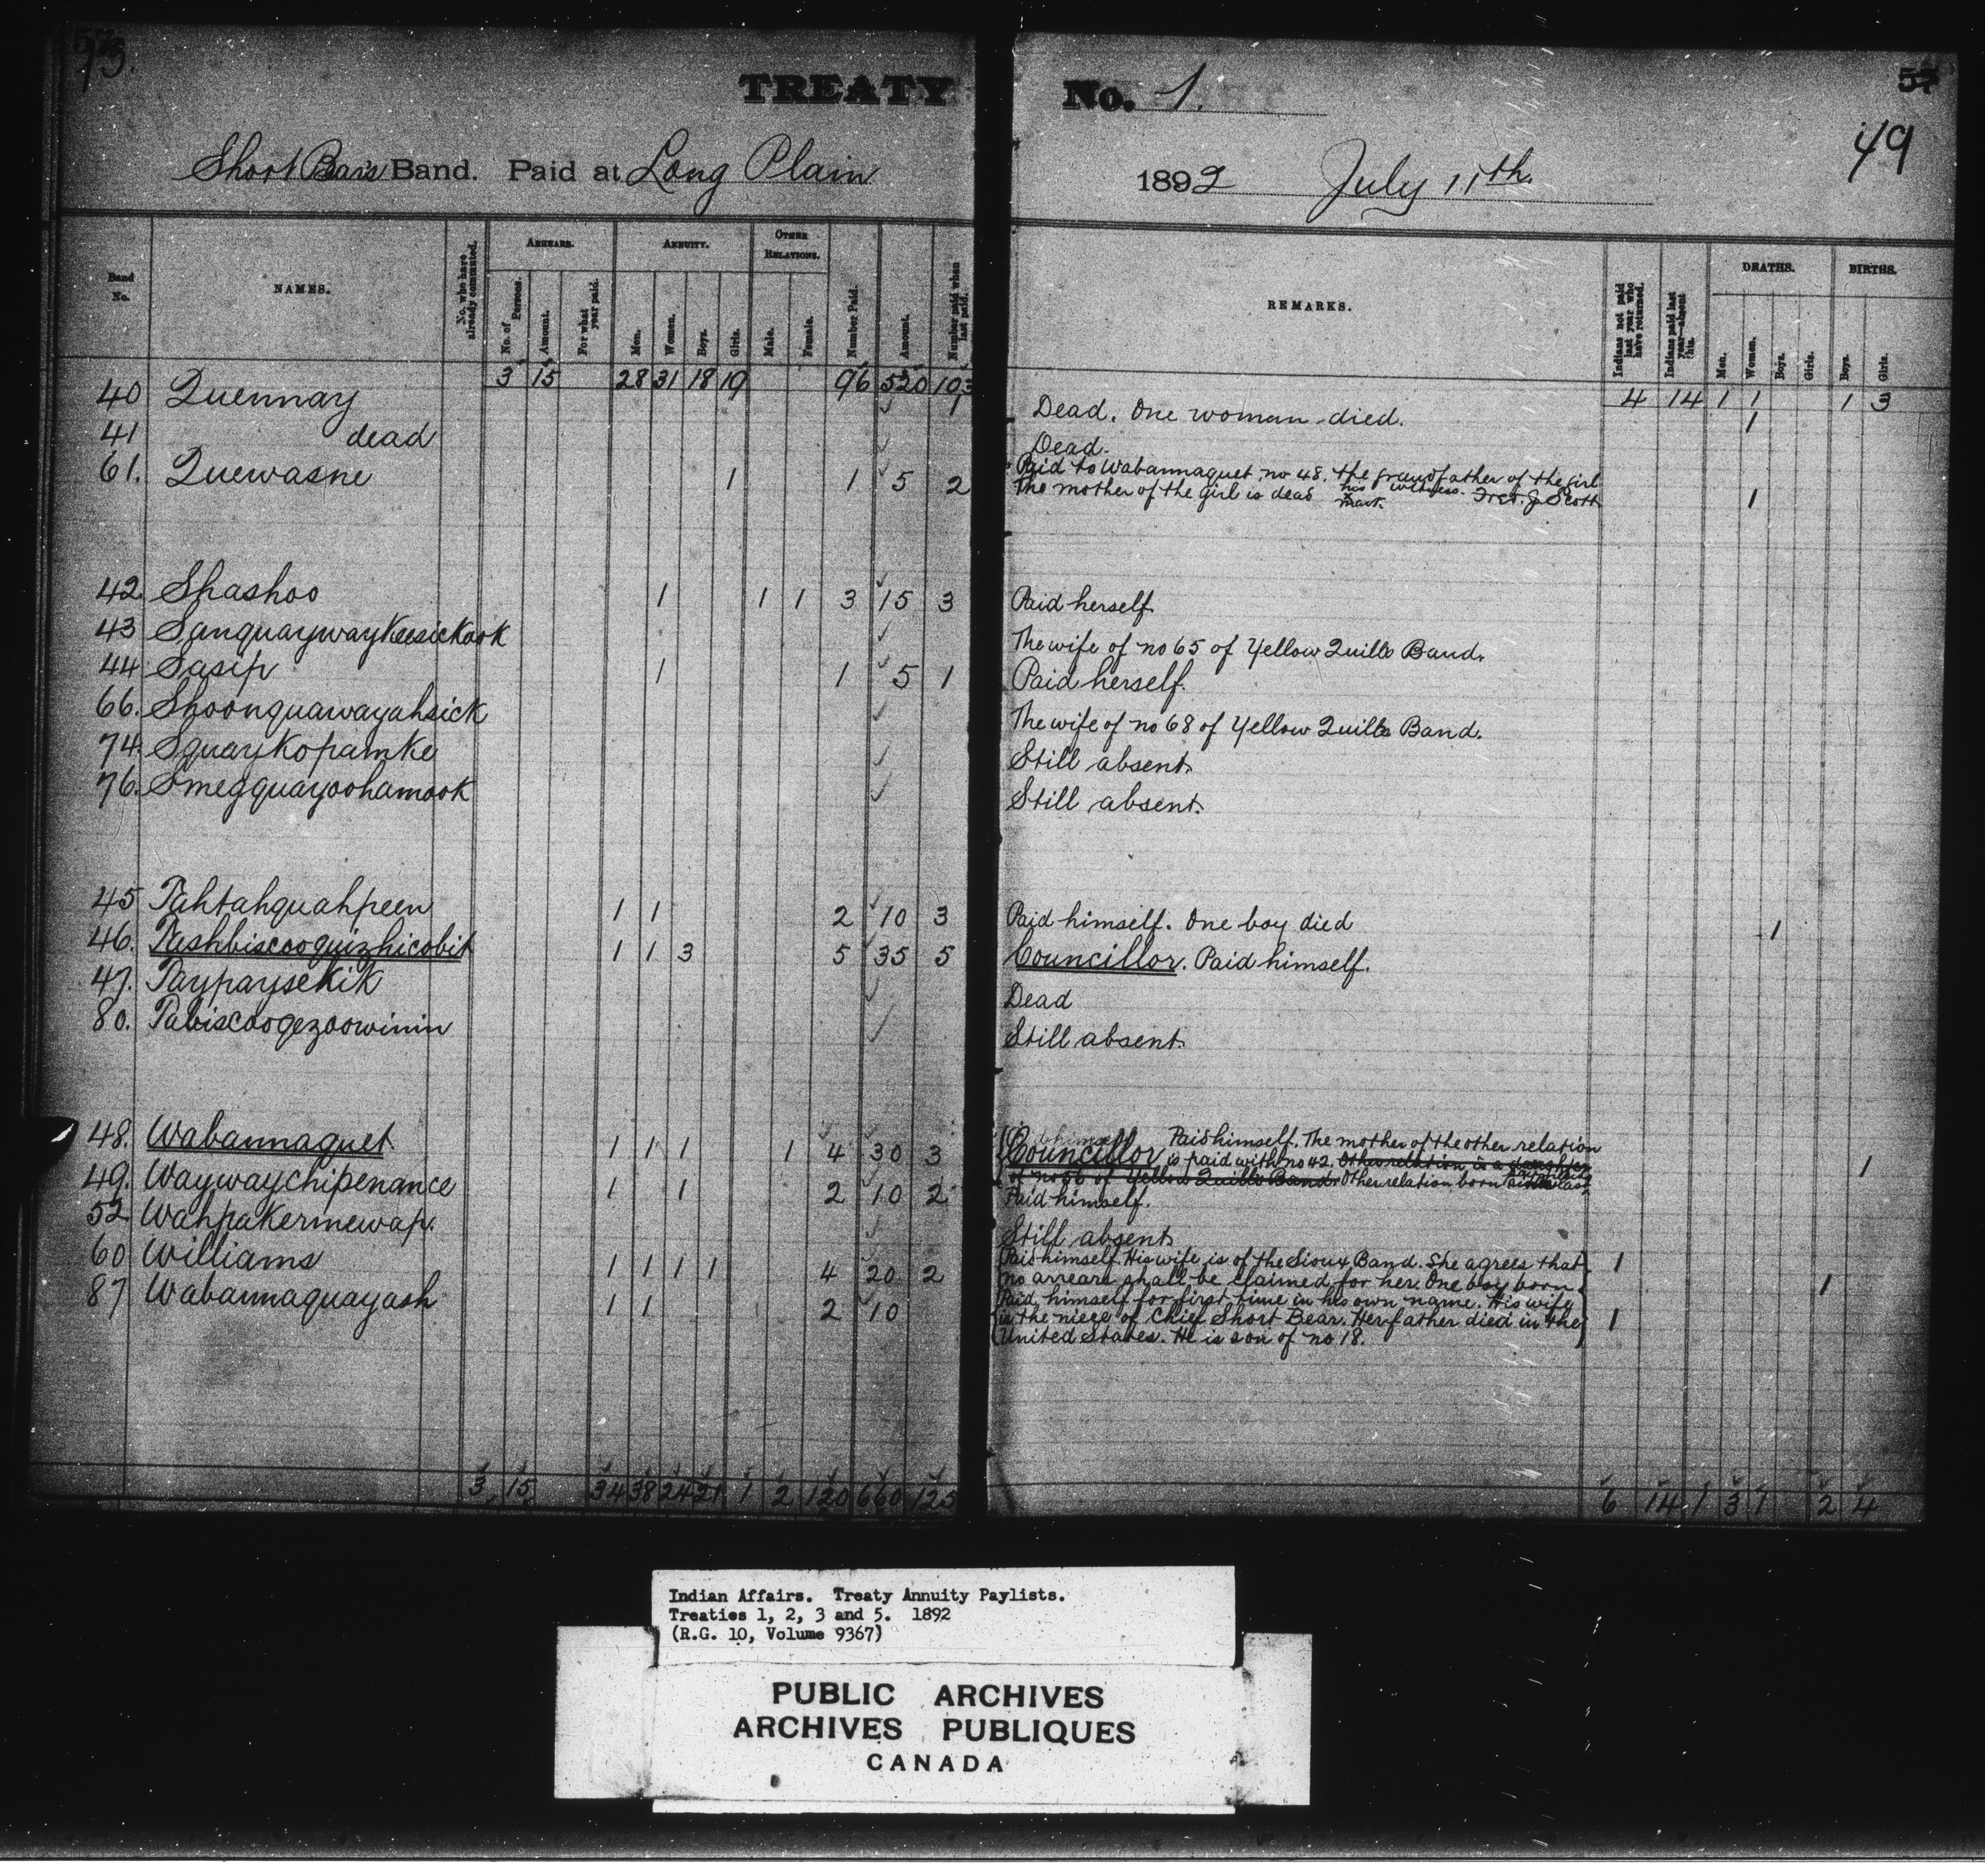 93.
TREATY No. 1.
49
Short Bear's Band. Paid at Long Plain 1892 July 11th.
Band No. NAMES. No. who have already commuted. ARREARS. No. of Persons. Amount. For what year paid. ANNUITY. Men. Women. Boys. Girls. OTHER RELATIONS. Male. Female. Number Paid. Amount. Number paid when last paid. REMARKS. Indians not paid last year who have returned. Indians paid last year—absent this. DEATHS. Men. Women. Boys. Girls. BIRTHS. Boys. Girls.
3 15 28 31 18 19 96 520 103 4 14 1 1 1 3
40 Quennay 1 Dead. One woman died. 1
41 dead Dead.
61. Quewasne 1 1 5 2 Paid to Wabannaquet no 48. the grandfather of the girl
The mother of the girl is dead his x mark. witness. Fred. J. Scott 1
42. Shashoo 1 1 1 3 15 3 Paid herself.
43 Sanquaywaykeesickook The wife of no 65 of Yellow Quills Band.
44 Sasip 1 1 5 1 Paid herself.
66. Shoonquawayahsick The wife of no 68 of Yellow Quills Band.
74 Squaykopamke Still absent.
76. Smegquayoohamook Still absent.
45 Tahtahquahpeen 1 1 2 10 3 Paid himself. One boy died 1
46. Tashbiscooquizhicobit 1 1 3 5 35 5 Councillor. Paid himself.
47. Taypaysekik Dead
80. Tabiscoogezoowinin Still absent.
48. Wabannaquet 1 1 1 1 4 30 3 Councillor Paid himself. The mother of the other relation
is paid with no 42. Other relation is a daughter
of no 66 of Yellow Quills Band. Other relation born 1
49. Waywaychipenance 1 1 2 10 2 Paid himself.
52 Wahpakermewap. Still absent
60 Williams 1 1 1 1 4 20 2 Paid himself. His wife is of the Sioux Band. She agrees that 1
no arrears shall be claimed for her. One boy born 1
87 Wabannaquayash 1 1 2 10 Paid himself for first time in his own name. His wife
is the niece of Chief Short Bear. Her father died in the 1
United States. He is son of no 18.
3 15 34 38 24 21 1 2 120 660 125 6 14 1 3 1 2 4
Indian Affairs. Treaty Annuity Paylists.
Treaties 1, 2, 3 and 5. 1892
(R.G. 10, Volume 9367)
PUBLIC ARCHIVES
ARCHIVES PUBLIQUES
CANADA